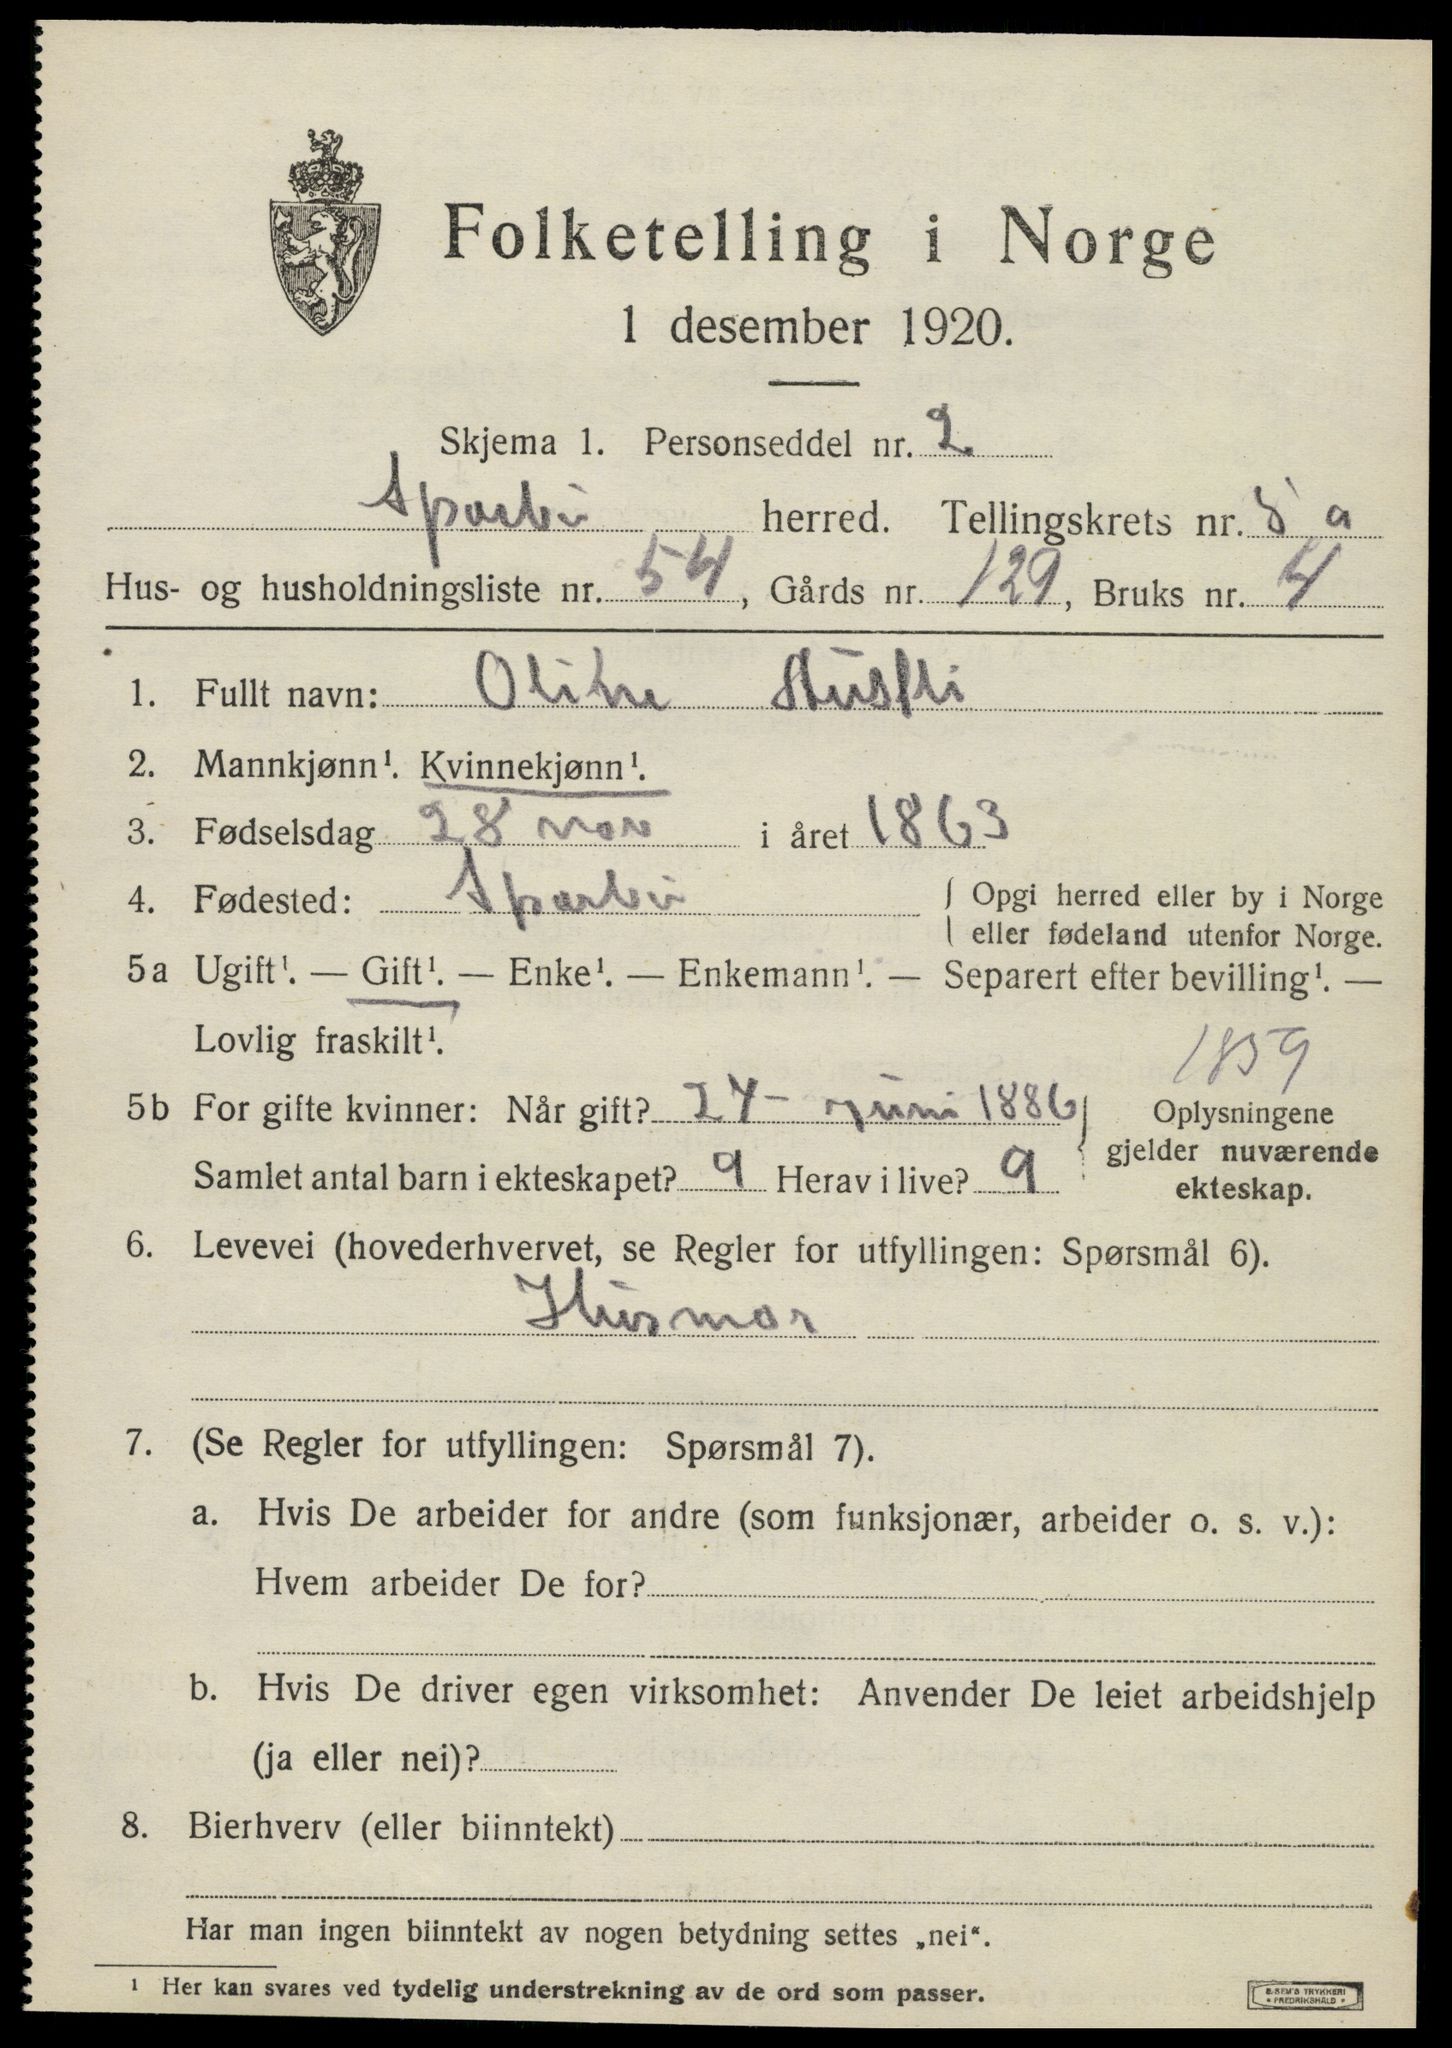 Folketelling i Norge
1 desember 1920.
Skjema 1. Personseddel nr. 2
Sparbu herred. Tellingskrets nr. 8 a
Hus- og husholdningsliste nr. 54, Gårds nr. 129, Bruks nr. 4
1. Fullt navn: Oline
2. Mannkjønn¹. Kvinnekjønn¹.
3. Fødselsdag 28 nov i året 1863
4. Fødested: Sparbu { Opgi herred eller by i Norge
eller fødeland utenfor Norge.
5a Ugift¹. — Gift¹. — Enke¹. — Enkemann¹. — Separert efter bevilling¹. —
Lovlig fraskilt¹.
1859
5b For gifte kvinner: Når gift? 24 - juni 1886 } Oplysningene
gjelder nuværende
Samlet antal barn i ekteskapet? 9 Herav i live? 9
ekteskap.
6. Levevei (hovederhvervet, se Regler for utfyllingen: Spørsmål 6).
Husmor
7. (Se Regler for utfyllingen: Spørsmål 7).
a. Hvis De arbeider for andre (som funksjonær, arbeider o. s. v.):
Hvem arbeider De for?
b. Hvis De driver egen virksomhet: Anvender De leiet arbeidshjelp
(ja eller nei)?
8. Bierhverv (eller biinntekt)
Har man ingen biinntekt av nogen betydning settes „nei“.
¹ Her kan svares ved tydelig understrekning av de ord som passer.
E. SEM'S TRYKKERI
• FREDRIKSHALD •